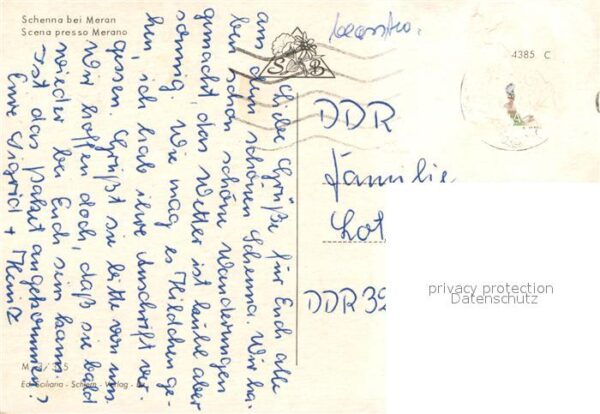 Schenna bei Meran
Scena presso Merano
4385 C
S B
Liebe Grüße für Euch alle
aus dem schönen Schenna. Wir ha-
ben schon schöne Wanderungen
gemacht, das Wetter ist kühl aber
sonnig. Wie mag es Hildchen ge-
hen, ich hab ihre Anschrift ver-
gessen. Grüßt sie bitte von uns.
Wir hoffen doch, daß sie bald
wieder bei Euch sein kann.
Ist das Paket angekommen?
Eure Sigrid + Heinz
DDR
Familie
Lot
DDR 32
privacy protection
Datenschutz